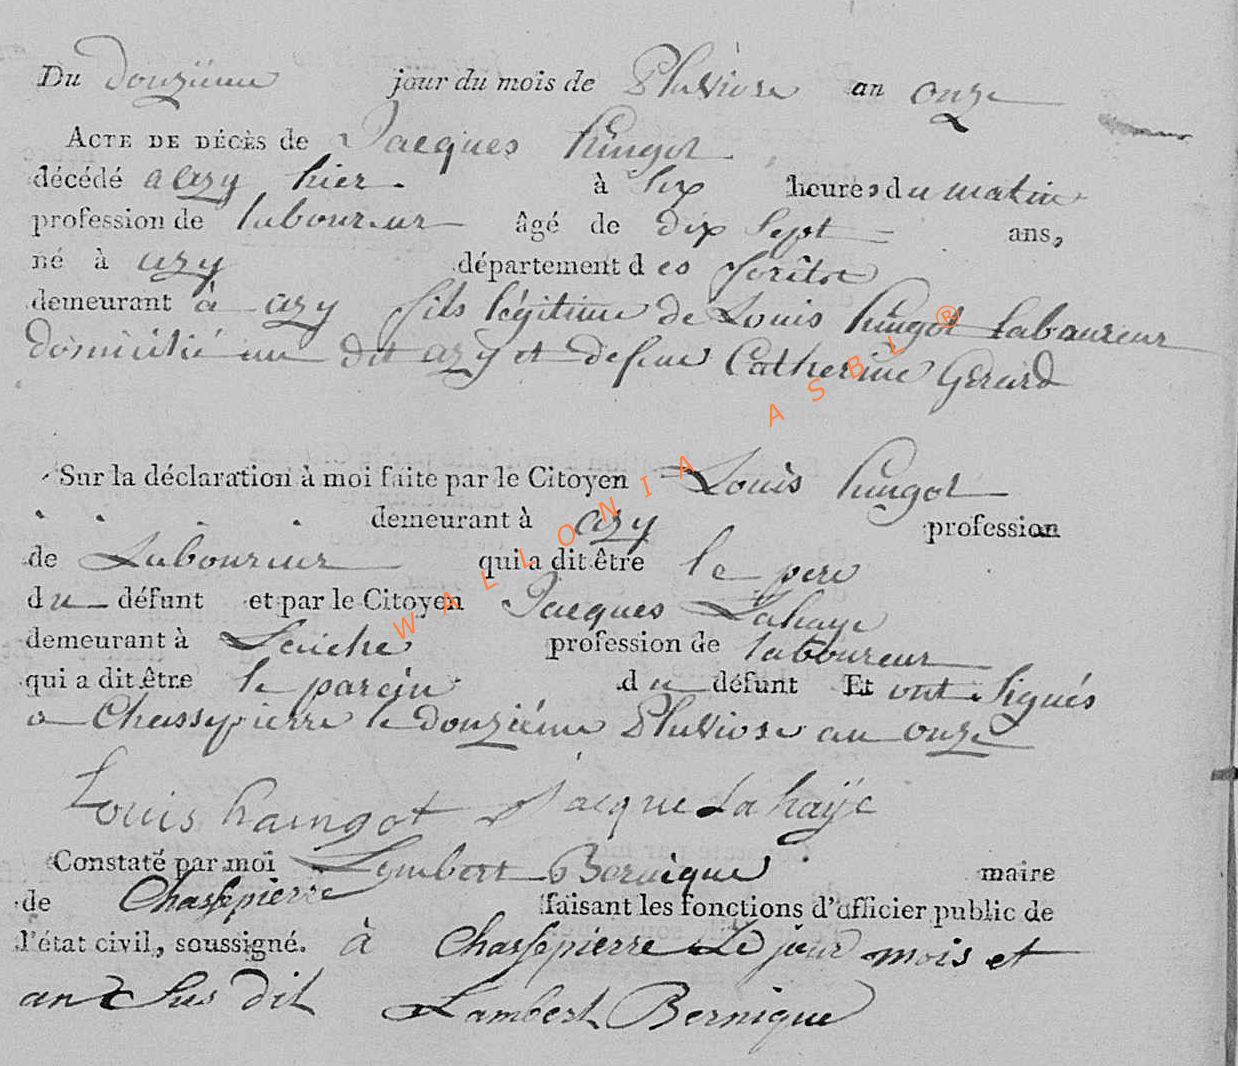 Du douziéme jour du mois de Pluviose an onze
ACTE DE DÉCÈS de Jacques hingot
décédé a azy hier à six heures du matin
profession de laboureur âgé de dix sept ans,
né à azy département des forêts
demeurant à azy fils légitime de Louis hingot laboureur
domicilié au dit azy et defunte Catherine Gerard
Sur la déclaration à moi faite par le Citoyen Louis hingot
demeurant à azy profession
de Laboureur qui a dit être le pere
du défunt et par le Citoyen Jacques Lahaye
demeurant à Laiche profession de laboureur
qui a dit être le parein du défunt Et ont signés
a Chassepierre le douziéme Pluviose an onze
Louis haingot Jacque Lahaÿe
Constaté par moi Lambert Bernique maire
de Chassepierre faisant les fonctions d'officier public de
l'état civil, soussigné. à Chassepierre Le jour mois et
an Sus dit Lambert Bernique
WALLONIA ASBL ®